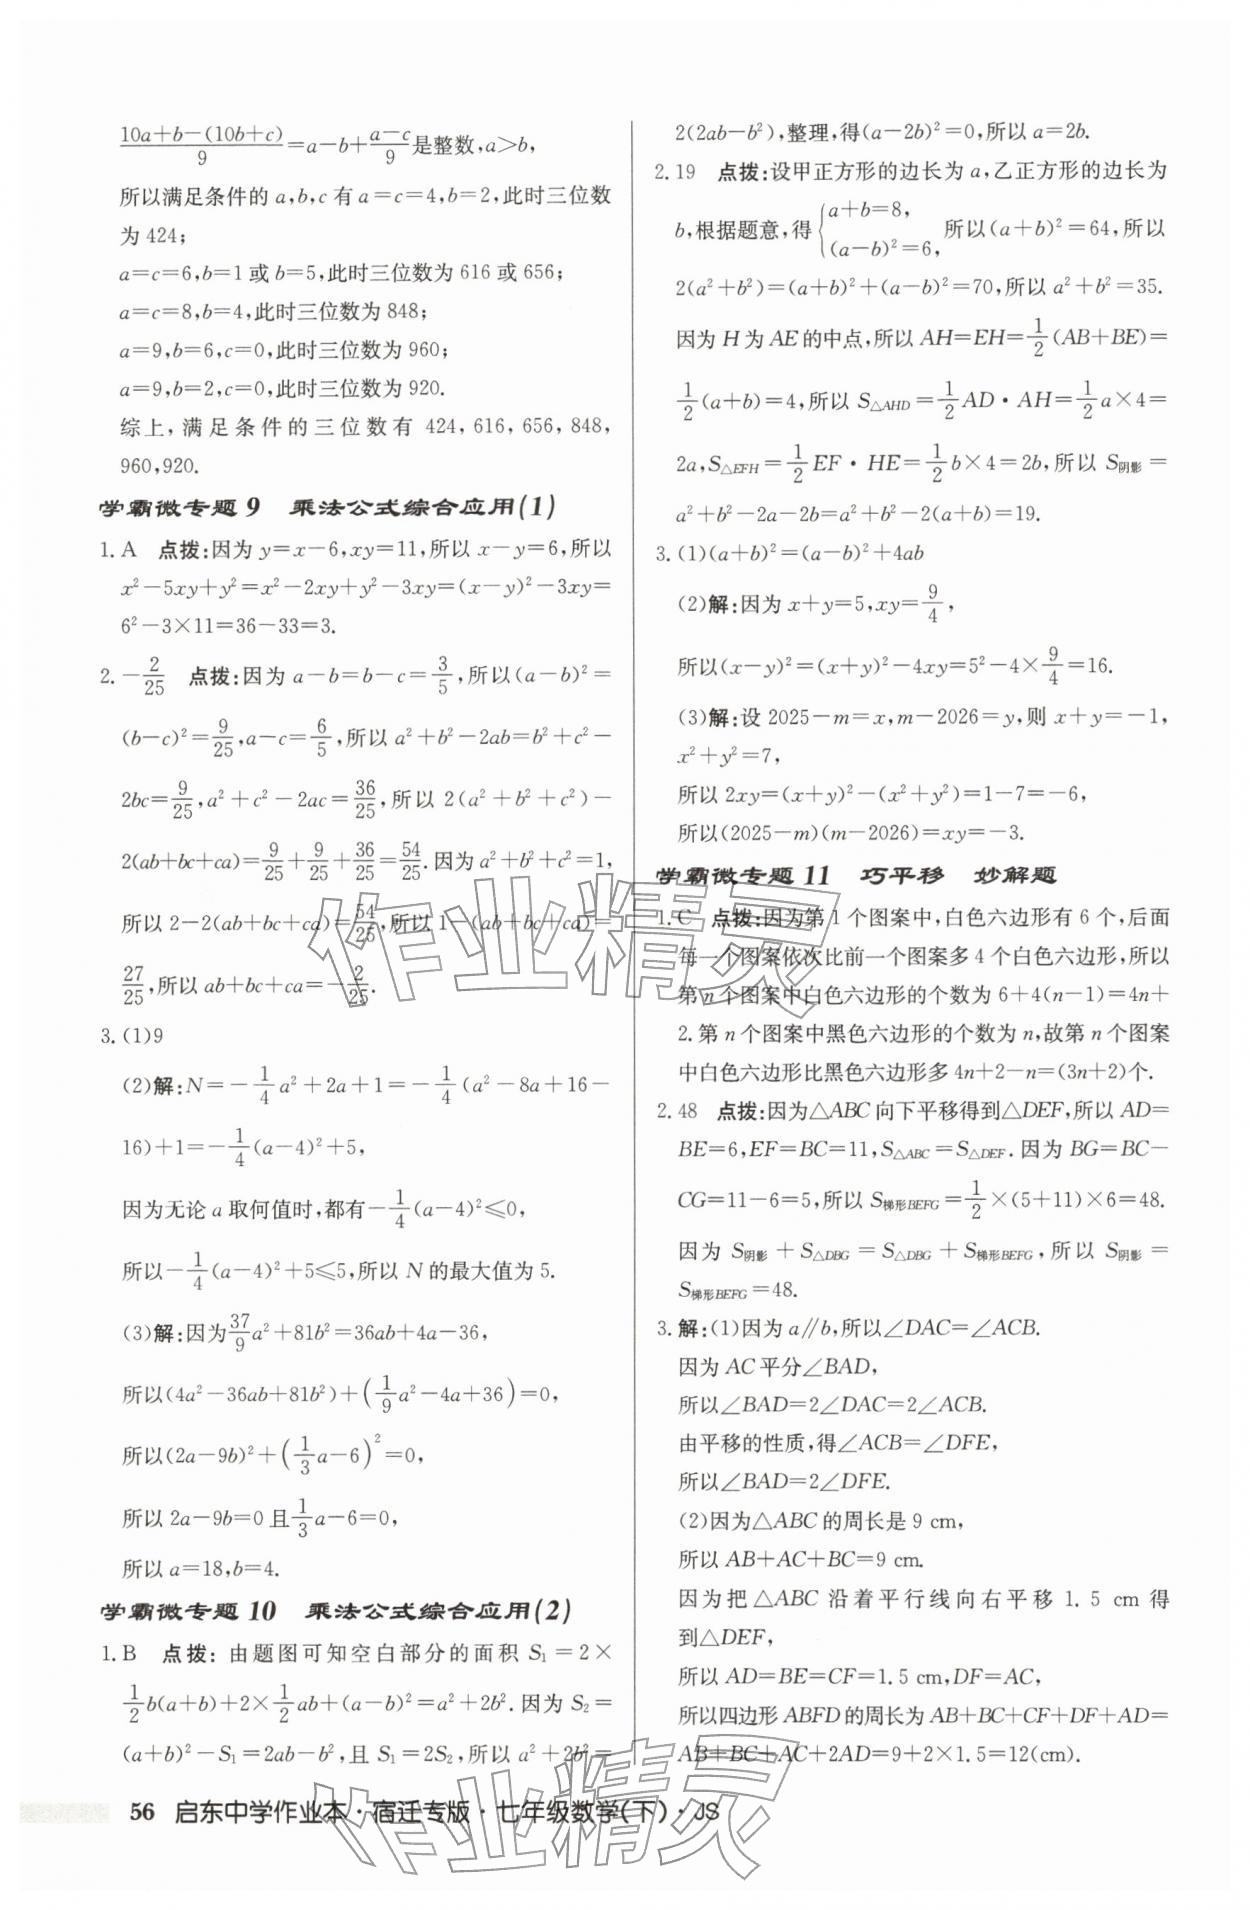 $\frac{10a+b-(10b+c)}{9}=a-b+\frac{a-c}{9}$是整数,a>b,
所以满足条件的 a,b,c 有 a=c=4,b=2,此时三位数
为 424;
a=c=6,b=1 或 b=5,此时三位数为 616 或 656;
a=c=8,b=4,此时三位数为 848;
a=9,b=6,c=0,此时三位数为 960;
a=9,b=2,c=0,此时三位数为 920.
综上,满足条件的三位数有 424,616,656,848,
960,920.
学霸微专题 9 乘法公式综合应用(1)
1. A 点拨:因为 y=x-6,xy=11,所以 x-y=6,所以
x²-5xy+y²=x²-2xy+y²-3xy=(x-y)²-3xy=
6²-3×11=36-33=3.
2. $-\frac{2}{25}$ 点拨:因为 a-b=b-c=$\frac{3}{5}$,所以(a-b)²=
(b-c)²=$\frac{9}{25}$,a-c=$\frac{6}{5}$,所以 a²+b²-2ab=b²+c²-
2bc=$\frac{9}{25}$,a²+c²-2ac=$\frac{36}{25}$,所以 2(a²+b²+c²)-
2(ab+bc+ca)=$\frac{9}{25}+\frac{9}{25}+\frac{36}{25}=\frac{54}{25}$.因为 a²+b²+c²=1,
所以 2-2(ab+bc+ca)=$\frac{54}{25}$,所以 1-(ab+bc+ca)=
$\frac{27}{25}$,所以 ab+bc+ca=$-\frac{2}{25}$.
3. (1)9
(2)解:N=$-\frac{1}{4}$a²+2a+1=$-\frac{1}{4}$(a²-8a+16-
16)+1=$-\frac{1}{4}$(a-4)²+5,
因为无论 a 取何值时,都有$-\frac{1}{4}$(a-4)²≤0,
所以$-\frac{1}{4}$(a-4)²+5≤5,所以 N 的最大值为 5.
(3)解:因为$\frac{37}{9}$a²+81b²=36ab+4a-36,
所以(4a²-36ab+81b²)+($\frac{1}{9}$a²-4a+36)=0,
所以(2a-9b)²+($\frac{1}{3}$a-6)²=0,
所以 2a-9b=0 且$\frac{1}{3}$a-6=0,
所以 a=18,b=4.
学霸微专题 10 乘法公式综合应用(2)
1. B 点拨:由题图可知空白部分的面积 S₁=2×
$\frac{1}{2}$b(a+b)+2×$\frac{1}{2}$ab+(a-b)²=a²+2b².因为 S₂=
(a+b)²-S₁=2ab-b²,且 S₁=2S₂,所以 a²+2b²=
2(2ab-b²),整理,得(a-2b)²=0,所以 a=2b.
2. 19 点拨:设甲正方形的边长为 a,乙正方形的边长为
b,根据题意,得$\begin{cases}a+b=8,\\(a-b)^2=6,\end{cases}$所以(a+b)²=64,所以
2(a²+b²)=(a+b)²+(a-b)²=70,所以 a²+b²=35.
因为 H 为 AE 的中点,所以 AH=EH=$\frac{1}{2}$(AB+BE)=
$\frac{1}{2}$(a+b)=4,所以 S△AHD=$\frac{1}{2}$AD·AH=$\frac{1}{2}$a×4=
2a,S△EFH=$\frac{1}{2}$EF·HE=$\frac{1}{2}$b×4=2b,所以 S阴影=
a²+b²-2a-2b=a²+b²-2(a+b)=19.
3. (1)(a+b)²=(a-b)²+4ab
(2)解:因为 x+y=5,xy=$\frac{9}{4}$,
所以(x-y)²=(x+y)²-4xy=5²-4×$\frac{9}{4}$=16.
(3)解:设 2025-m=x,m-2026=y,则 x+y=-1,
x²+y²=7,
所以 2xy=(x+y)²-(x²+y²)=1-7=-6,
所以(2025-m)(m-2026)=xy=-3.
学霸微专题 11 巧平移 妙解题
1. C 点拨:因为第 1 个图案中,白色六边形有 6 个,后面
每一个图案依次比前一个图案多 4 个白色六边形,所以
第 n 个图案中白色六边形的个数为 6+4(n-1)=4n+
2.第 n 个图案中黑色六边形的个数为 n,故第 n 个图案
中白色六边形比黑色六边形多 4n+2-n=(3n+2)个.
2. 48 点拨:因为△ABC 向下平移得到△DEF,所以 AD=
BE=6,EF=BC=11,S△ABC=S△DEF.因为 BG=BC-
CG=11-6=5,所以 S梯形BEFG=$\frac{1}{2}$×(5+11)×6=48.
因为 S阴影+S△DBG=S△DBG+S梯形BEFG,所以 S阴影=
S梯形BEFG=48.
3. 解:(1)因为 a∥b,所以∠DAC=∠ACB.
因为 AC 平分∠BAD,
所以∠BAD=2∠DAC=2∠ACB.
由平移的性质,得∠ACB=∠DFE,
所以∠BAD=2∠DFE.
(2)因为△ABC 的周长是 9 cm,
所以 AB+AC+BC=9 cm.
因为把△ABC 沿着平行线向右平移 1.5 cm 得
到△DEF,
所以 AD=BE=CF=1.5 cm,DF=AC,
所以四边形 ABFD 的周长为 AB+BC+CF+DF+AD=
AB+BC+AC+2AD=9+2×1.5=12(cm).
作业精灵
作业精灵
56 启东中学作业本·宿迁专版·七年级数学(下)·JS